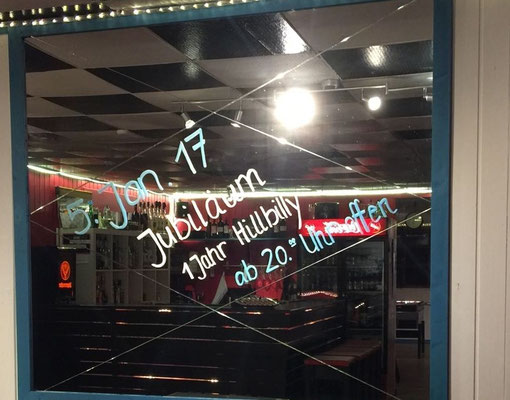 5. Jan 17
Jubiläum
1 Jahr Hillbilly
ab 20.⁰⁰ Uhr offen